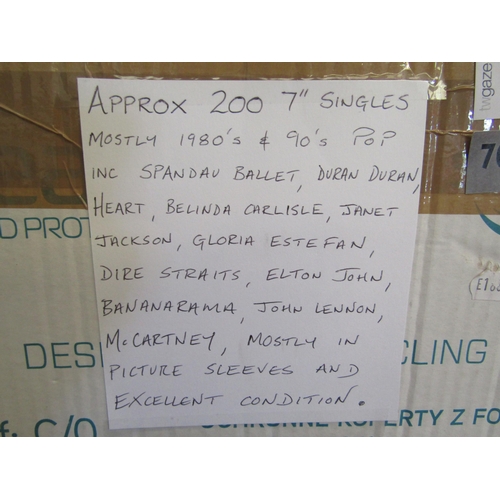 APPROX 200 7" SINGLES
MOSTLY 1980's & 90's POP
INC SPANDAU BALLET, DURAN DURAN,
HEART, BELINDA CARLISLE, JANET
JACKSON, GLORIA ESTEFAN,
DIRE STRAITS, ELTON JOHN,
BANANARAMA, JOHN LENNON,
McCARTNEY, MOSTLY IN
PICTURE SLEEVES AND
EXCELLENT CONDITION.
twgaze
D PROT
DESI
CLING
C/O
Z FO